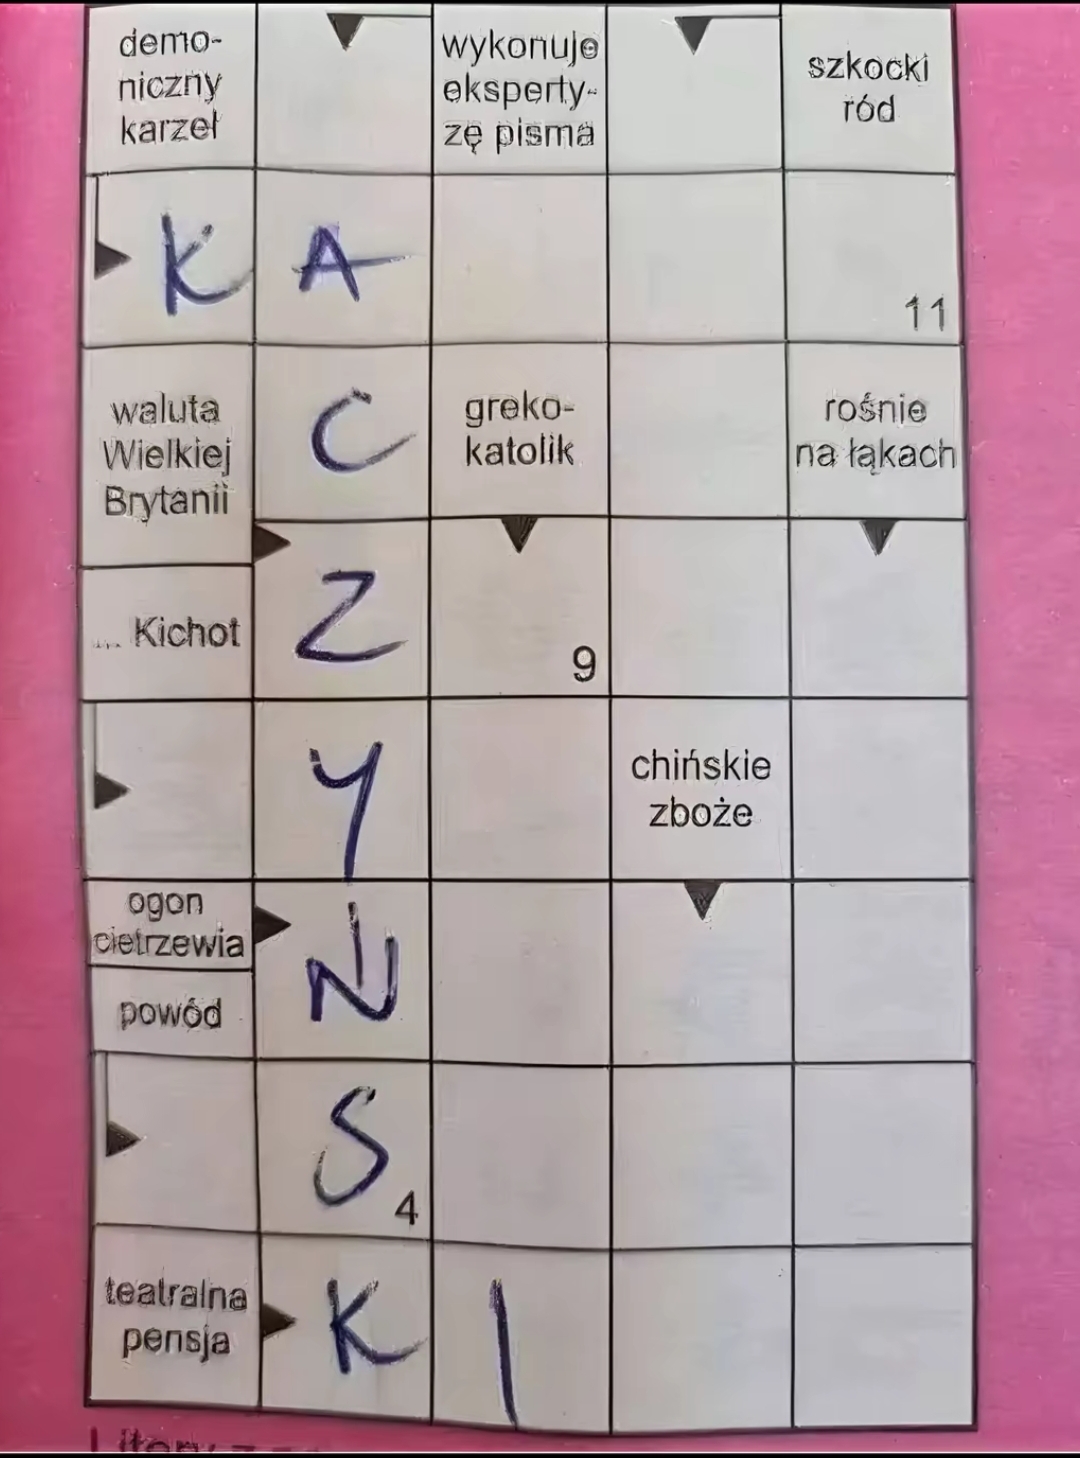 demo-
niczny
karzeł
wykonuje
eksperty-
zę pisma
szkocki
ród
K A
11
waluta
Wielkiej
Brytanii
C
greko-
katolik
rośnie
na łąkach
... Kichot
Z
9
Y
chińskie
zboże
ogon
cietrzewia
Ń
powód
S
4
teatralna
pensja
K I